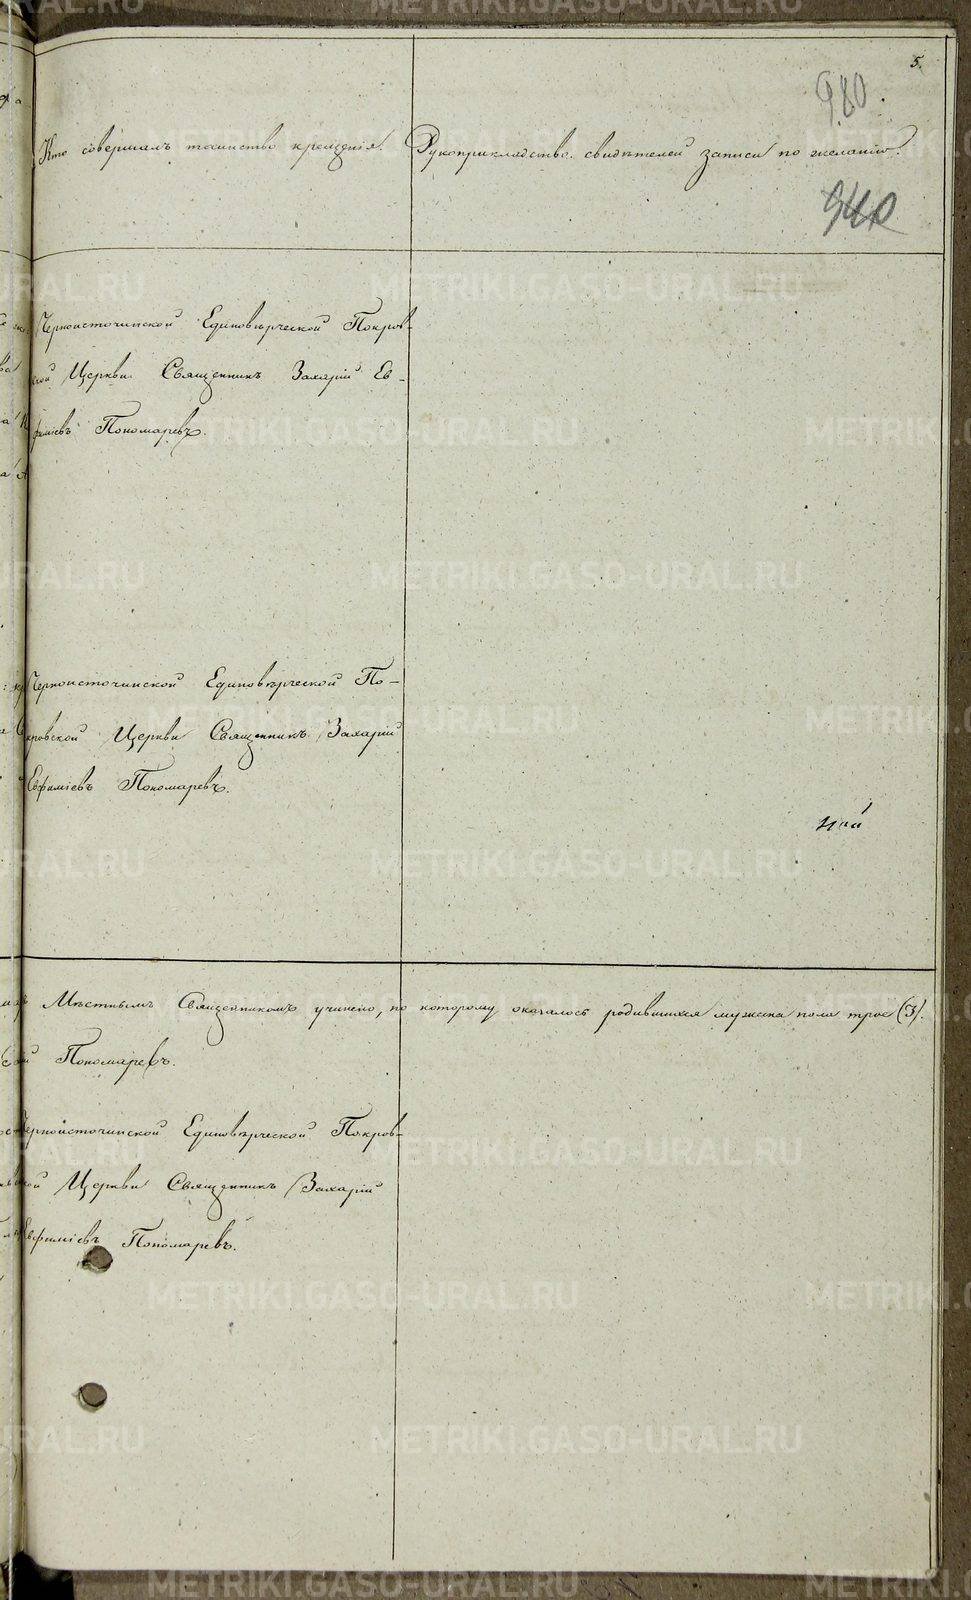 5.
980.
Кто совершалъ таинство крещенія. Рукоприкладство свидѣтелей записи по желанію.
940
Черноисточинской Единовѣрческой Покров-
ской Церкви Священникъ Захарій Ев-
фиміевъ Пономаревъ.
Черноисточинской Единовѣрческой По-
кровской Церкви Священникъ Захарій
Евфиміевъ Пономаревъ.
Мѣстнымъ Священникомъ учинено, по которому оказалось родившихся мужска пола трое (3).
Пономаревъ.
Черноисточинской Единовѣрческой Покров-
ской Церкви Священникъ Захарій
Евфиміевъ Пономаревъ.
METRIKI.GASO-URAL.RU